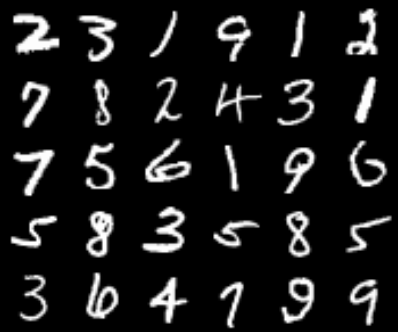 2 3 1 9 1 2
7 8 2 4 3 1
7 5 6 1 9 6
5 8 3 5 8 5
3 6 4 7 9 9